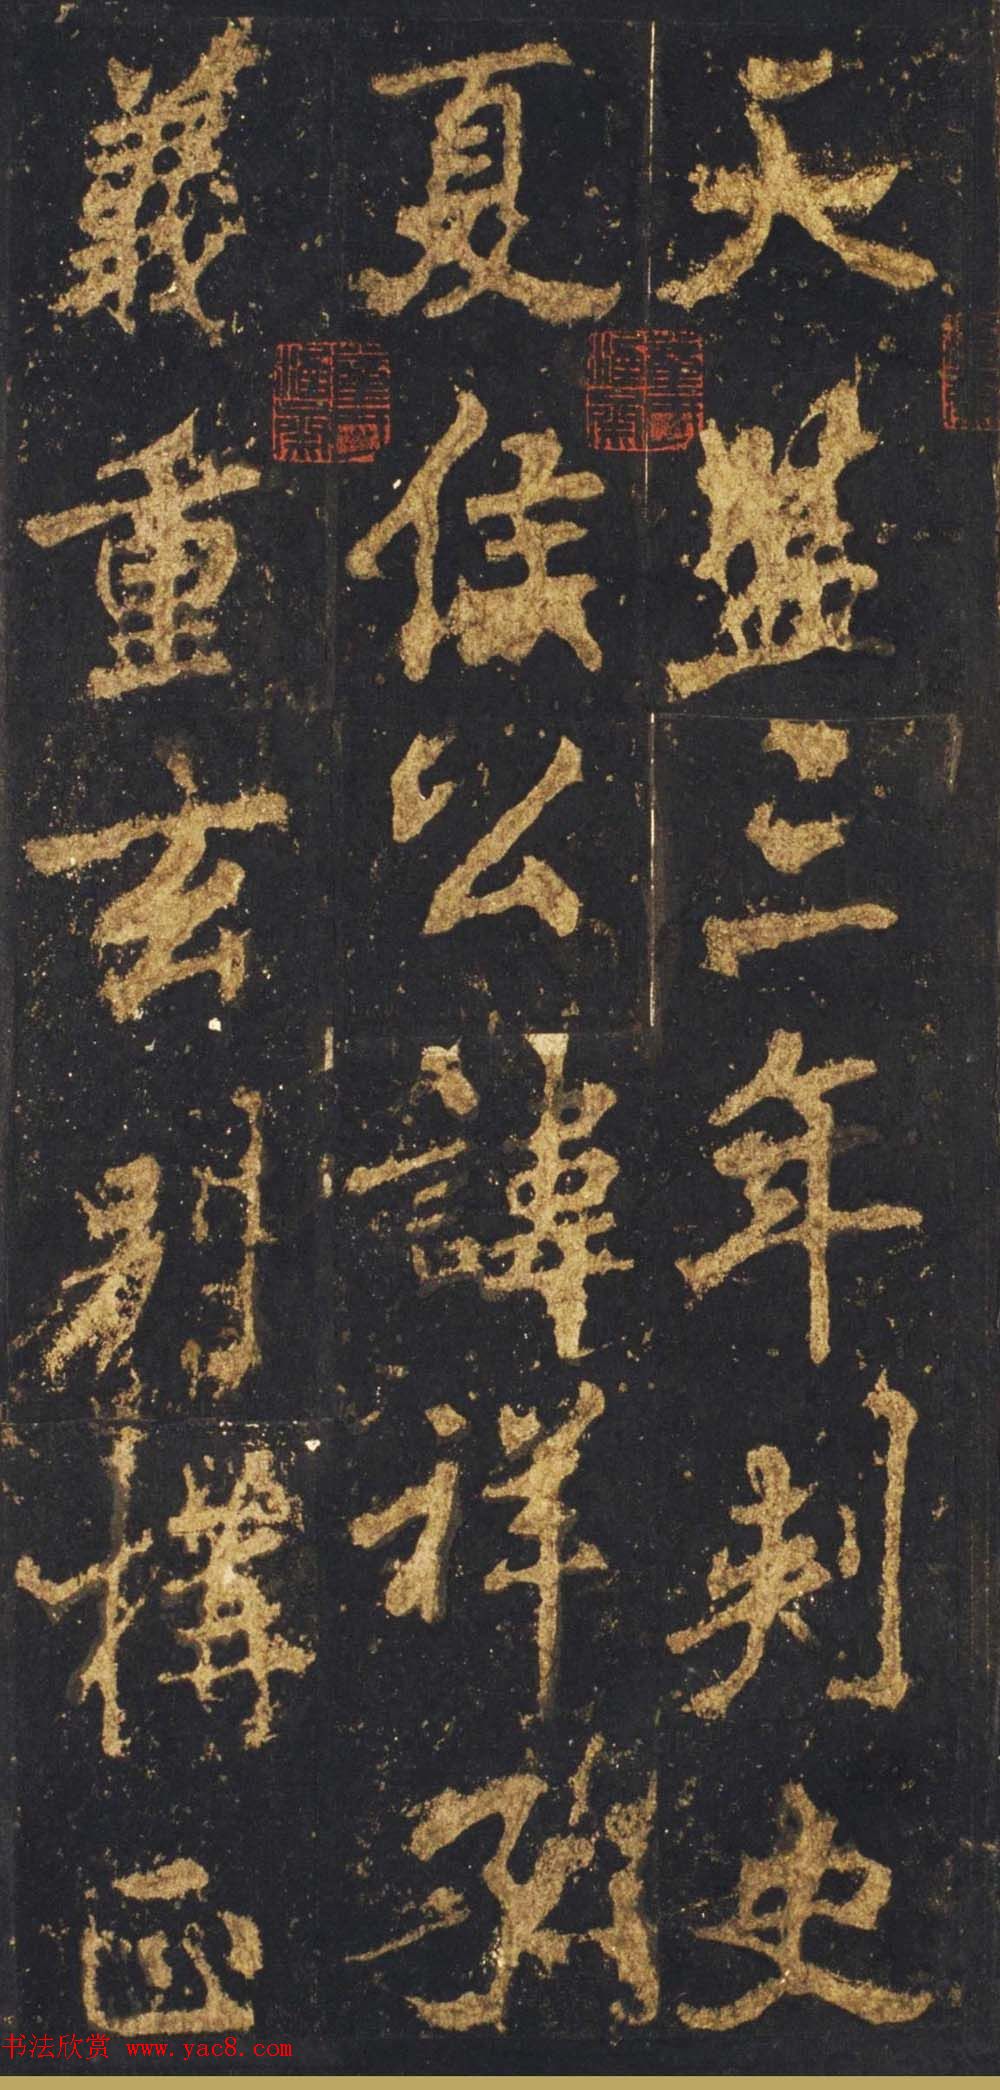 天監三年刺史
夏侯公諱祥
義重玄別構正
书法欣赏 www.yac8.com